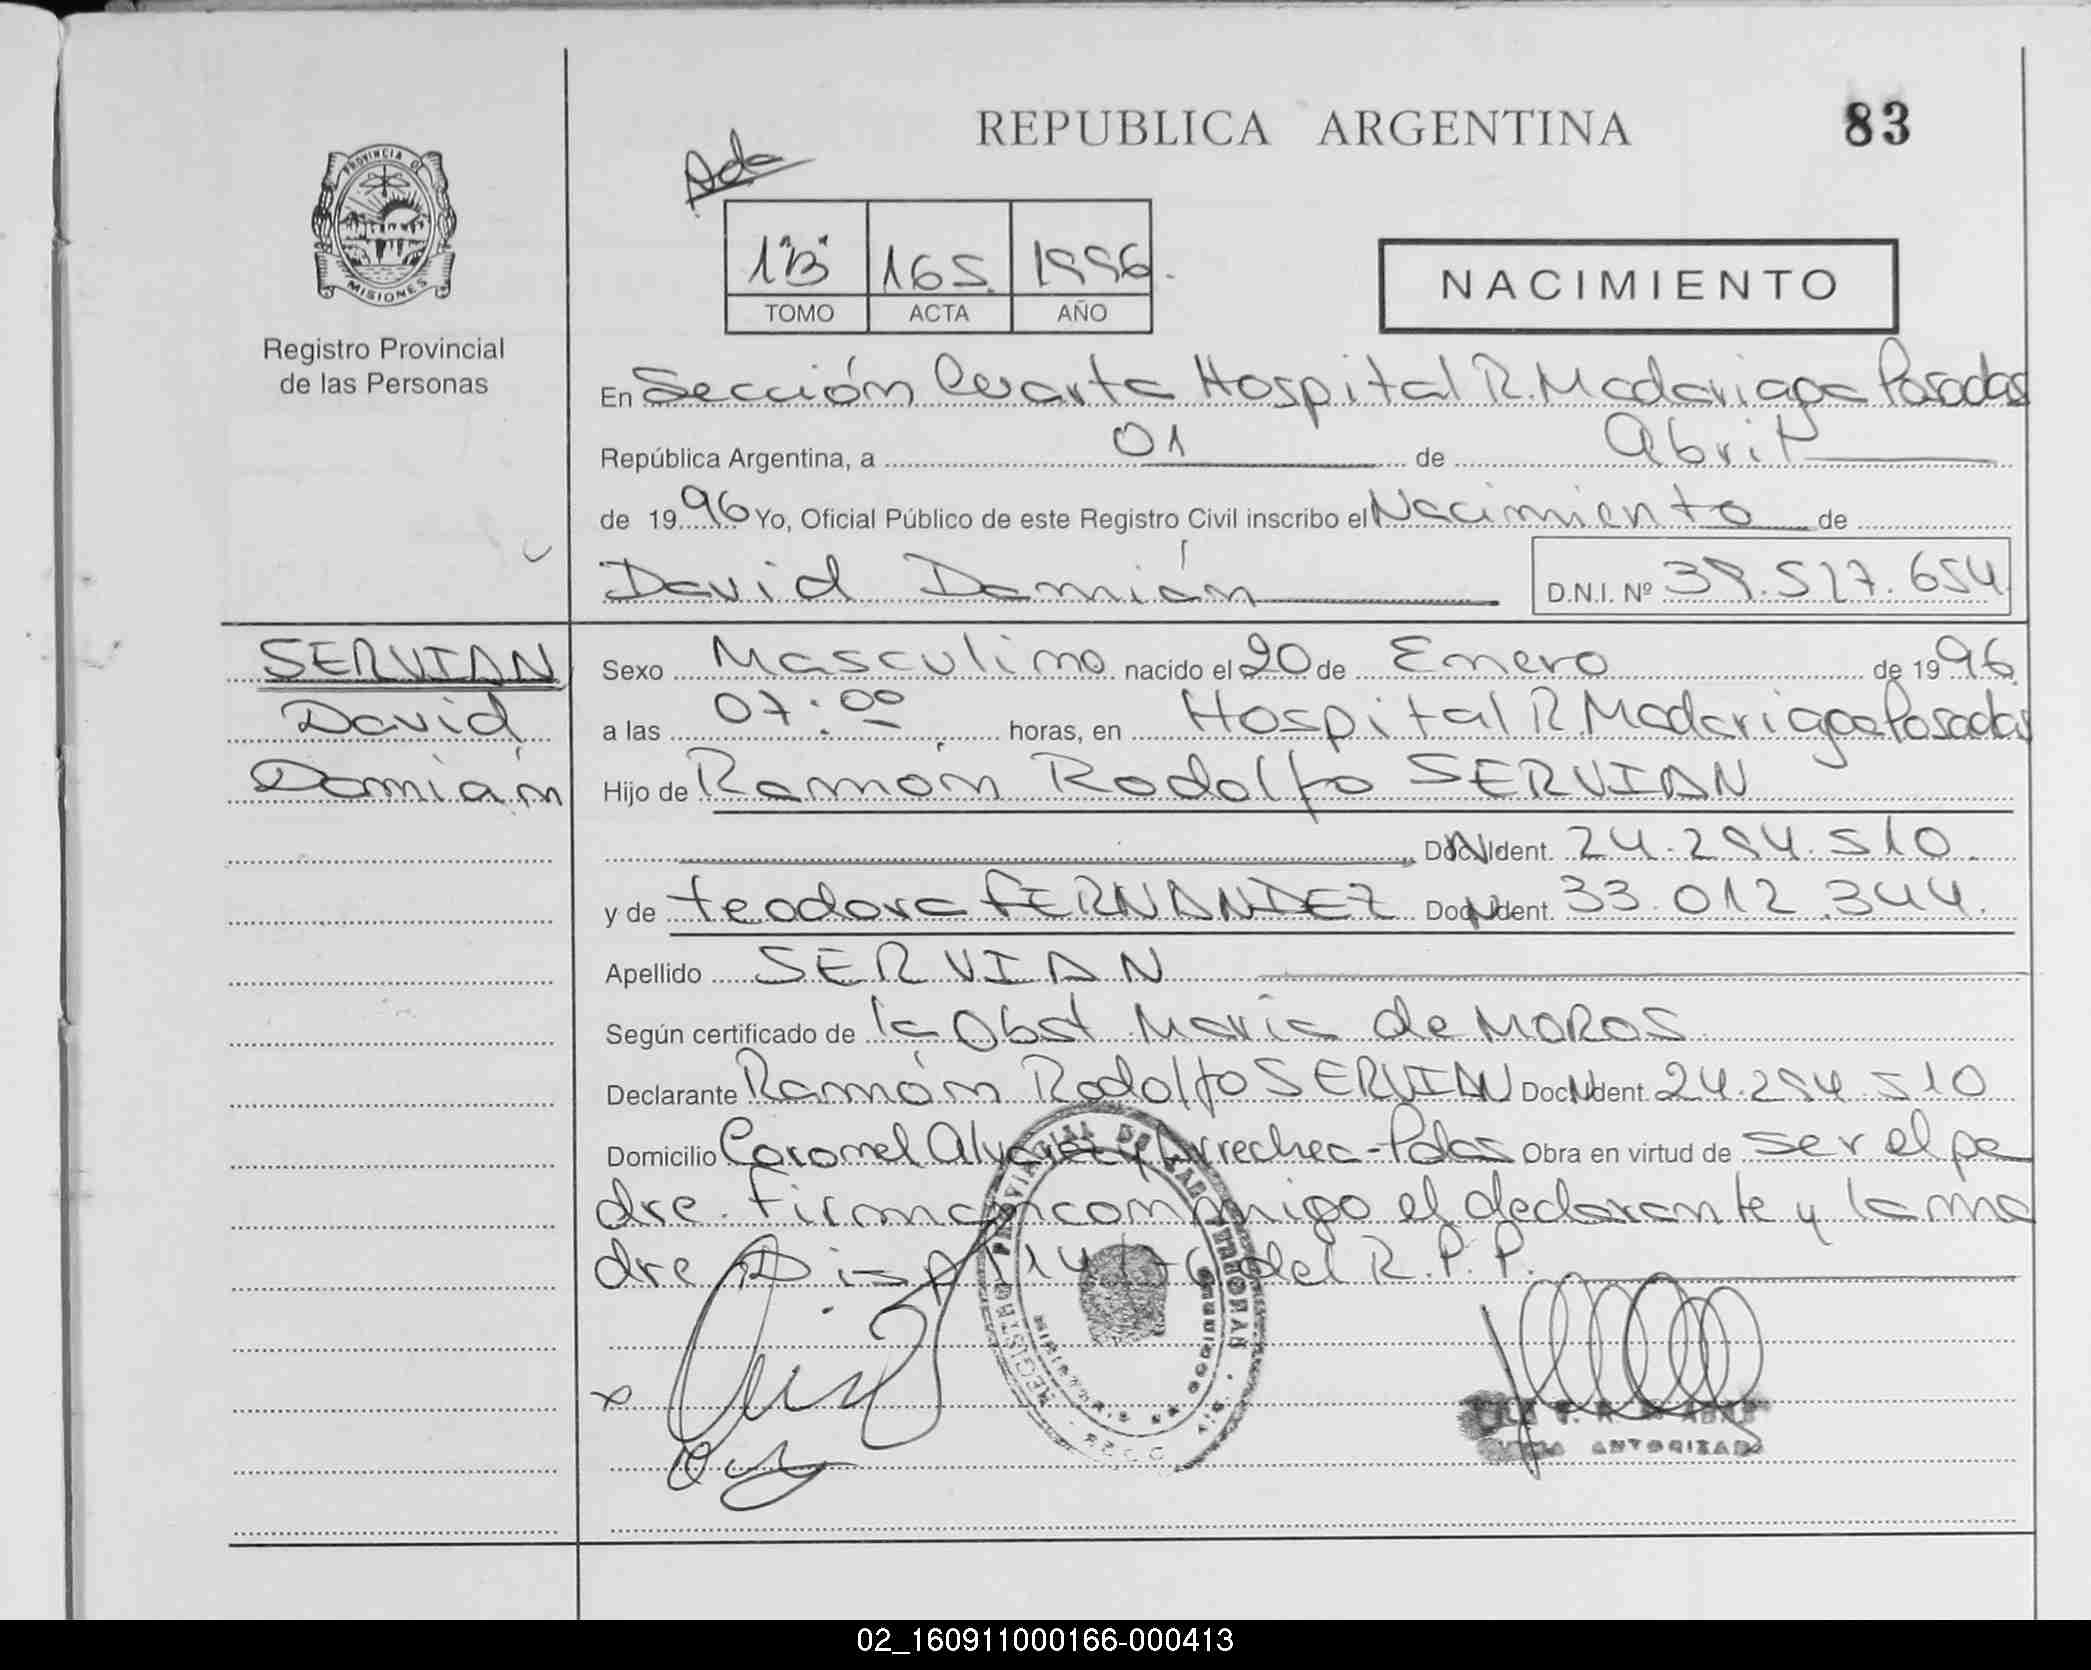 REPUBLICA ARGENTINA
83
PROVINCIA DE
MISIONES
Registro Provincial
de las Personas
1"B" 165. 1996.
TOMO ACTA AÑO
NACIMIENTO
En Sección Cuarta Hospital R. Madariaga Posadas
República Argentina, a 01 de Abril
de 1996 Yo, Oficial Público de este Registro Civil inscribo el Nacimiento de
David Damián
D.N.I. Nº 39.527.654
SERVIAN
David
Damián
Sexo Masculino nacido el 20 de Enero de 1996
a las 07:00 horas, en Hospital R. Madariaga Posadas
Hijo de Ramón Rodolfo SERVIAN
Doc. Ident. 24.294.510
y de teodora FERNANDEZ Doc. Ident. 33.012.344.
Apellido SERVIAN
Según certificado de la Obst Maria de MOROS
Declarante Ramón Rodolfo SERVIAN Doc. Ident. 24.294.510
Domicilio Coronel Alvarez y Arrechea - Pdas Obra en virtud de ser el pa
dre. Firman conmigo el declarante y la ma
dre Disp. del R.P.P.
AUTORIZADA
02_160911000166-000413